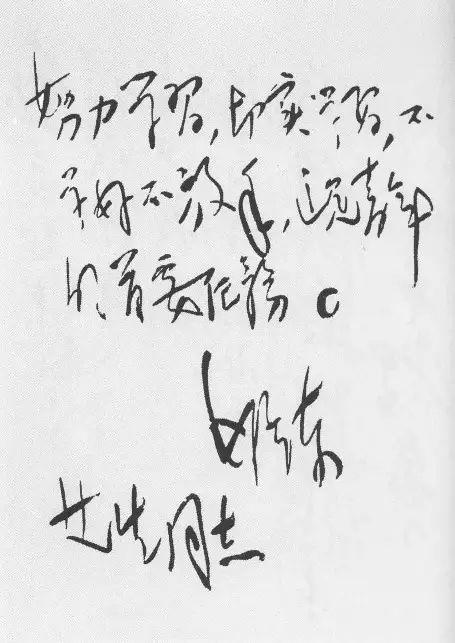 努力学习,切实学习,不
学好不放手,这是青年
的首要任务。
同志